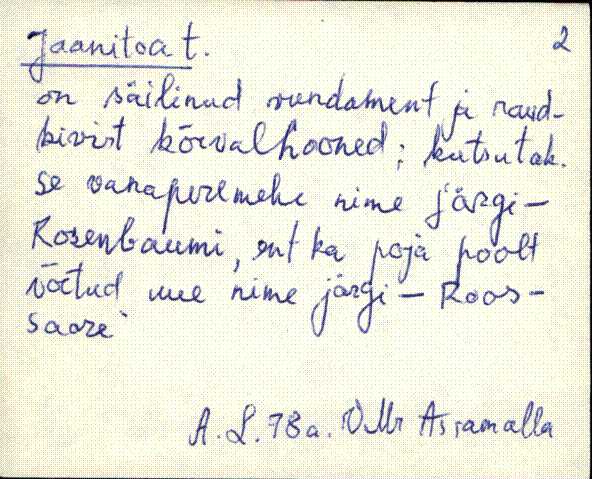 Jaanitoa t. 2
on säilinud vundament ja raud-
kivist kõrvalhooned; kutsutak-
se vanaperemehe nime järgi –
Rosenbaumi, ent ka poja poolt
võetud uue nime järgi – Roos-
saare
A. L. 78a. VMr Assamalla